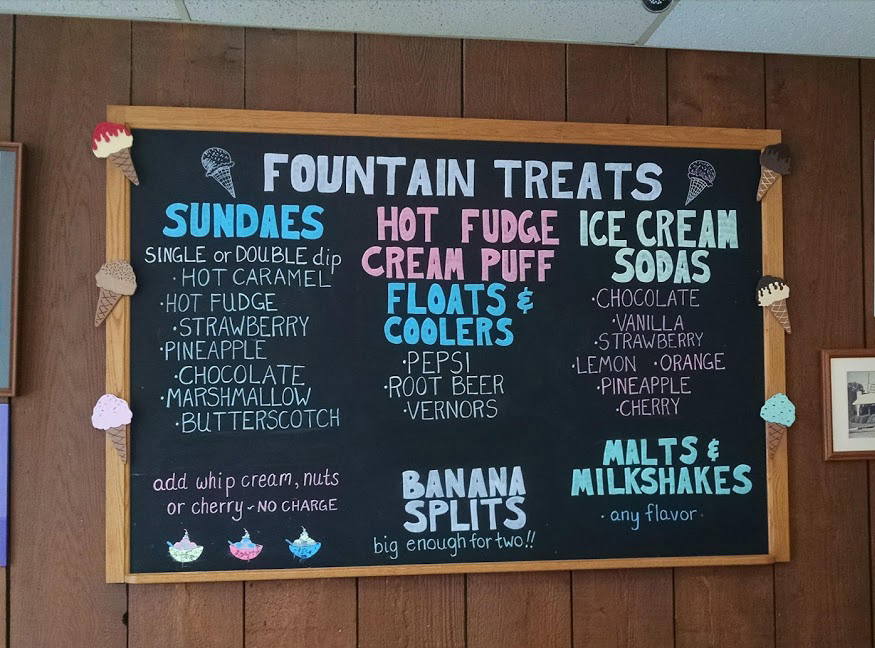 FOUNTAIN TREATS
SUNDAES
SINGLE or DOUBLE dip
· HOT CARAMEL
· HOT FUDGE
· STRAWBERRY
· PINEAPPLE
· CHOCOLATE
· MARSHMALLOW
· BUTTERSCOTCH
add whip cream, nuts
or cherry ~ NO CHARGE
HOT FUDGE
CREAM PUFF
FLOATS &
COOLERS
· PEPSI
· ROOT BEER
· VERNORS
BANANA
SPLITS
big enough for two!!
ICE CREAM
SODAS
· CHOCOLATE
· VANILLA
· STRAWBERRY
· LEMON · ORANGE
· PINEAPPLE
· CHERRY
MALTS &
MILKSHAKES
· any flavor ·